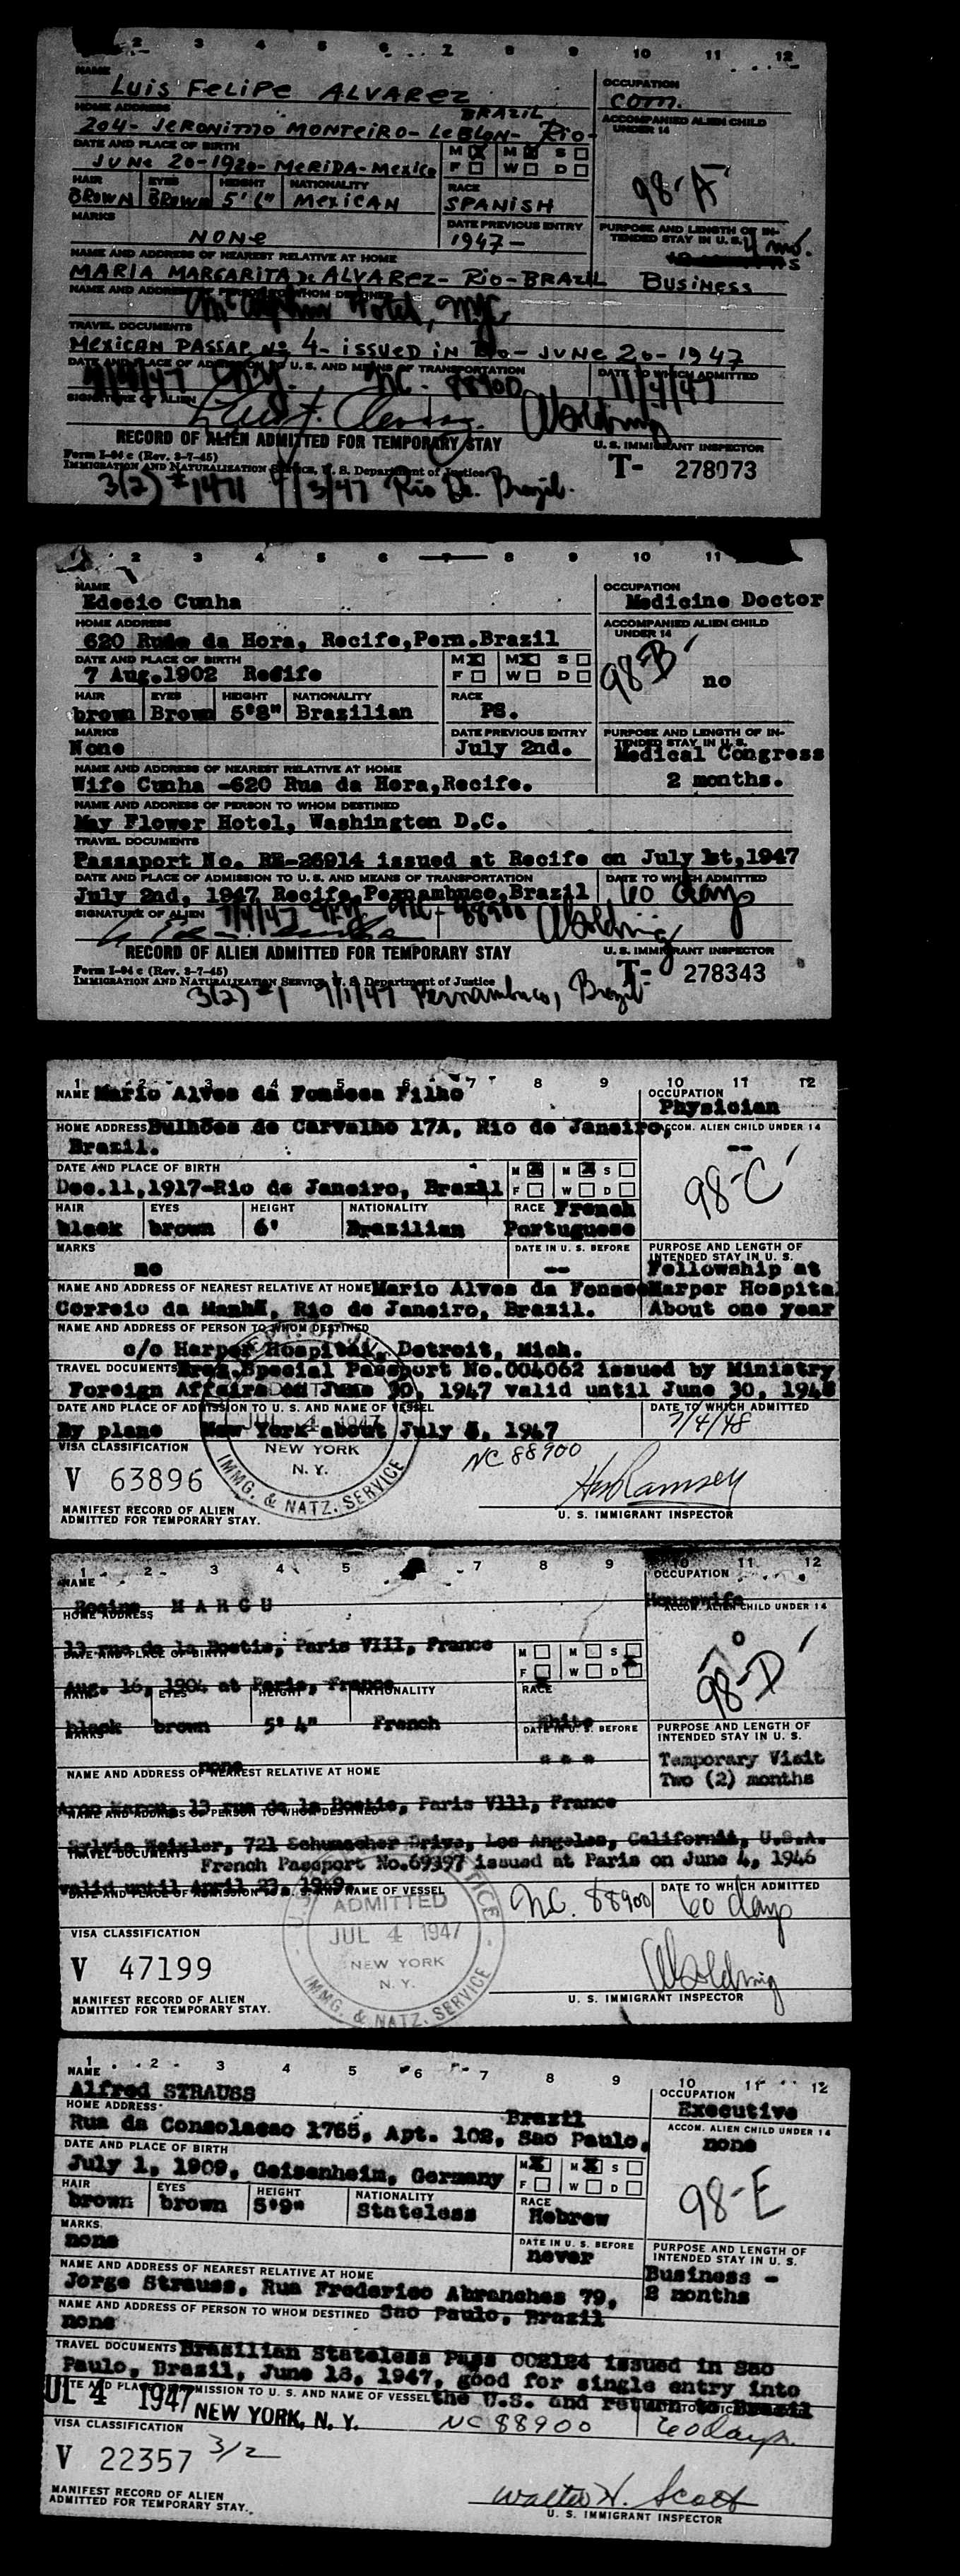 2 3 4 5 6 7 8 9 10 11 12
NAME Luis Felipe ALVAREZ
OCCUPATION com.
HOME ADDRESS BRAZIL
204- JERONIMO MONTEIRO- LeBLON- Rio-
ACCOMPANIED ALIEN CHILD UNDER 14
98-A
DATE AND PLACE OF BIRTH
JUNE 20-1920- MERIDA- Mexico
M M S
F W D
HAIR EYES HEIGHT NATIONALITY RACE
BROWN BROWN 5' 6" MEXICAN SPANISH
MARKS DATE PREVIOUS ENTRY PURPOSE AND LENGTH OF INTENDED STAY IN U. S.
NONE 1947- 4 mo.
NAME AND ADDRESS OF NEAREST RELATIVE AT HOME
MARIA MARGARITA de ALVAREZ- Rio- BRAZIL BUSINESS
NAME AND ADDRESS OF PERSON TO WHOM DESTINED
McAlpin Hotel, NYC
TRAVEL DOCUMENTS
MEXICAN PASSAP. No 4- ISSUED IN Rio- JUNE 20-1947
DATE AND PLACE OF ADMISSION TO U. S. AND MEANS OF TRANSPORTATION DATE TO WHICH ADMITTED
NC. 88900 11/4/47
SIGNATURE OF ALIEN
RECORD OF ALIEN ADMITTED FOR TEMPORARY STAY U. S. IMMIGRANT INSPECTOR
Form I-94 c (Rev. 3-7-45)
IMMIGRATION AND NATURALIZATION SERVICE, U. S. Department of Justice T- 278073
3(2) #1471 7/3/47 Rio De. Brazil.
2 3 4 5 6 7 8 9 10 11
NAME OCCUPATION
Edecio Cunha Medicine Doctor
HOME ADDRESS ACCOMPANIED ALIEN CHILD UNDER 14
620 Rua da Hora, Recife,Pern.Brazil
98-B
no
DATE AND PLACE OF BIRTH
7 Aug.1902 Recife
M M S
F W D
HAIR EYES HEIGHT NATIONALITY RACE
brown Brown 5'8" Brazilian PS.
MARKS DATE PREVIOUS ENTRY PURPOSE AND LENGTH OF INTENDED STAY IN U. S.
None July 2nd. Medical Congress
NAME AND ADDRESS OF NEAREST RELATIVE AT HOME
Wife Cunha -620 Rua da Hora,Recife. 2 months.
NAME AND ADDRESS OF PERSON TO WHOM DESTINED
May Flower Hotel, Washington D.C.
TRAVEL DOCUMENTS
Passaport No. RE-26914 issued at Recife on July 1st,1947
DATE AND PLACE OF ADMISSION TO U. S. AND MEANS OF TRANSPORTATION DATE TO WHICH ADMITTED
July 2nd, 1947 Recife,Pernambuco,Brazil 60 days
SIGNATURE OF ALIEN 7/4/47 NC- 88900
RECORD OF ALIEN ADMITTED FOR TEMPORARY STAY U. S. IMMIGRANT INSPECTOR
Form I-94 c (Rev. 3-7-45)
IMMIGRATION AND NATURALIZATION SERVICE, U. S. Department of Justice T- 278343
3(2) #1 7/1/47 Pernambuco, Brazil
1 2 3 4 5 6 7 8 9 10 11 12
NAME Mario Alves da Fonseca Filho OCCUPATION
Physician
HOME ADDRESS Bulhões de Carvalho 17A, Rio de Janeiro, ACCOM. ALIEN CHILD UNDER 14
Brazil. --
98-C
DATE AND PLACE OF BIRTH
Dec.11,1917-Rio de Janeiro, Brazil
M M S
F W D
HAIR EYES HEIGHT NATIONALITY RACE French
black brown 6' Brazilian Portuguese
MARKS DATE IN U. S. BEFORE PURPOSE AND LENGTH OF INTENDED STAY IN U. S.
no -- Fellowship at
NAME AND ADDRESS OF NEAREST RELATIVE AT HOME Mario Alves da Fonsec Harper Hospital
Correio da Manhã, Rio de Janeiro, Brazil. About one year
NAME AND ADDRESS OF PERSON TO WHOM DESTINED
c/o Harper Hospital, Detroit, Mich.
TRAVEL DOCUMENTS Special Passport No.004062 issued by Ministry
Foreign Affairs on June 30, 1947 valid until June 30, 1948
DATE AND PLACE OF ADMISSION TO U. S. AND NAME OF VESSEL DATE TO WHICH ADMITTED
By plane New York about July 5, 1947 7/4/48
VISA CLASSIFICATION NEW YORK N. Y. NC 88900
V 63896 IMMG. & NATZ. SERVICE
MANIFEST RECORD OF ALIEN ADMITTED FOR TEMPORARY STAY. U. S. IMMIGRANT INSPECTOR
1 2 3 4 5 7 8 9 10 11 12
NAME OCCUPATION
Rosine MARCU Housewife
HOME ADDRESS ACCOM. ALIEN CHILD UNDER 14
13 rue de la Boetie, Paris VIII, France
0
98-D
DATE AND PLACE OF BIRTH
Aug. 16, 1904 at Paris, France
M M S
F W D
HAIR EYES HEIGHT NATIONALITY RACE
black brown 5' 4" French White
MARKS DATE IN U. S. BEFORE PURPOSE AND LENGTH OF INTENDED STAY IN U. S.
none Temporary Visit
Two (2) months
NAME AND ADDRESS OF NEAREST RELATIVE AT HOME
13 rue de la Boetie, Paris VIII, France
NAME AND ADDRESS OF PERSON TO WHOM DESTINED
Sylvia Weixler, 721 Schumacher Drive, Los Angeles, California, U.S.A.
TRAVEL DOCUMENTS
French Passport No.69397 issued at Paris on June 4, 1946
valid until April 23, 1949.
DATE AND PLACE OF ADMISSION TO U. S. AND NAME OF VESSEL DATE TO WHICH ADMITTED
NC. 88900 60 days
ADMITTED
JUL 4 1947
NEW YORK
N. Y.
IMMG. & NATZ. SERVICE
VISA CLASSIFICATION
V 47199
MANIFEST RECORD OF ALIEN ADMITTED FOR TEMPORARY STAY. U. S. IMMIGRANT INSPECTOR
1 2 3 4 5 6 7 8 9 10 11 12
NAME OCCUPATION
Alfred STRAUSS Executive
HOME ADDRESS Brazil ACCOM. ALIEN CHILD UNDER 14
Rua da Consolacao 1765, Apt. 102, Sao Paulo, none
98-E
DATE AND PLACE OF BIRTH
July 1, 1909, Geisenheim, Germany
M M S
F W D
HAIR EYES HEIGHT NATIONALITY RACE
brown brown 5'9" Stateless Hebrew
MARKS DATE IN U. S. BEFORE PURPOSE AND LENGTH OF INTENDED STAY IN U. S.
none never Business -
NAME AND ADDRESS OF NEAREST RELATIVE AT HOME
Jorge Strauss, Rua Frederico Abranches 79, 2 months
NAME AND ADDRESS OF PERSON TO WHOM DESTINED Sao Paulo, Brazil
none
TRAVEL DOCUMENTS Brazilian Stateless Pass 002124 issued in Sao
Paulo, Brazil, June 13, 1947, good for single entry into
DATE AND PLACE OF ADMISSION TO U. S. AND NAME OF VESSEL the U.S. and return to Brazil
JUL 4 1947 NEW YORK, N. Y. NC 88900 60 days.
VISA CLASSIFICATION
V 22357 3/2
MANIFEST RECORD OF ALIEN ADMITTED FOR TEMPORARY STAY. Walter H. Scott
U. S. IMMIGRANT INSPECTOR